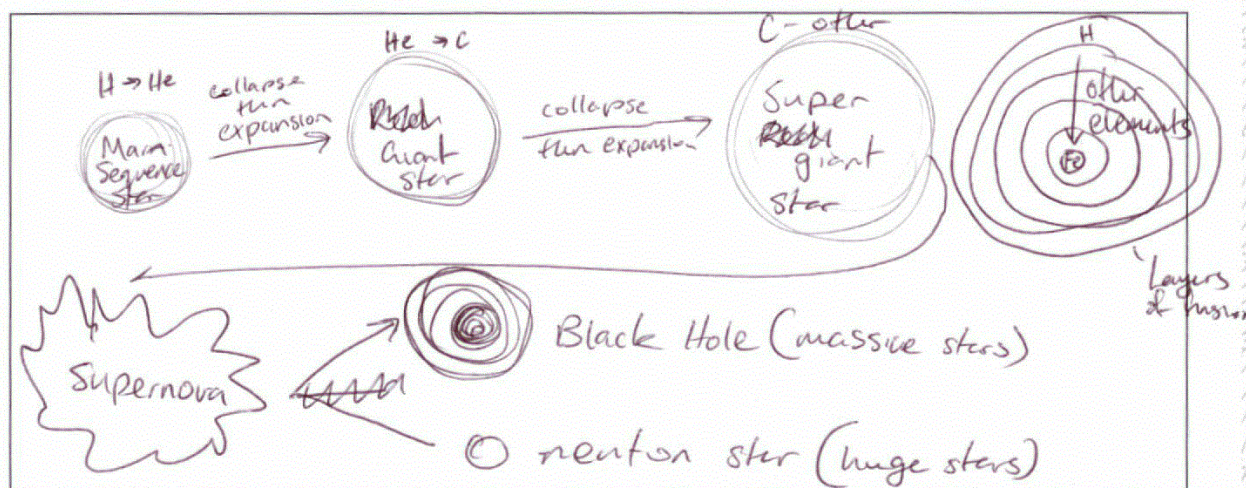 H → He
collapse
then
expansion
Main
Sequence
Star
He → C
Giant
Star
collapse
then expansion
C - other
Super
giant
Star
H
other
elements
Fe
Layers
of fusion
Supernova
Black Hole (massive stars)
neuton star (huge stars)